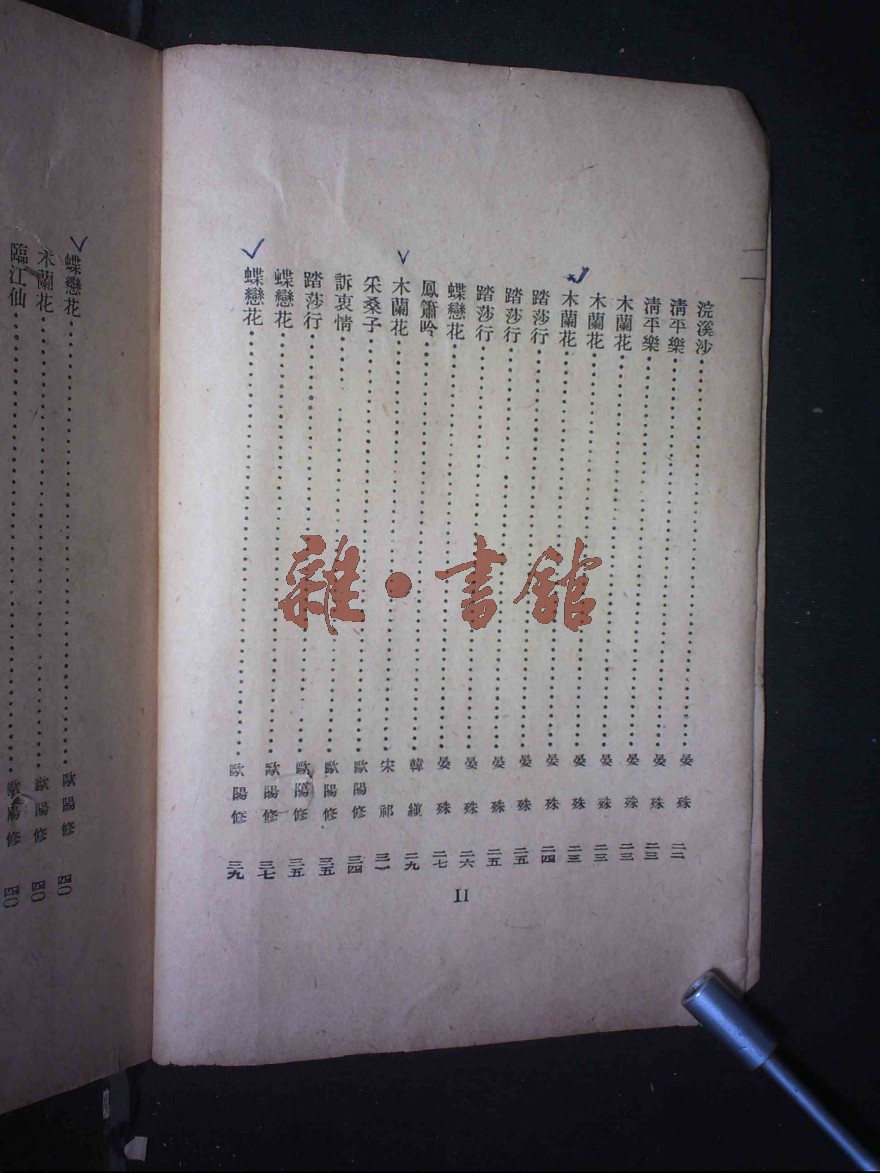 浣溪沙 晏殊 二二
清平樂 晏殊 二三
清平樂 晏殊 二三
木蘭花 晏殊 二三
木蘭花 晏殊 二三
木蘭花 晏殊 二四
踏莎行 晏殊 二五
踏莎行 晏殊 二五
踏莎行 晏殊 二六
蝶戀花 晏殊 二七
鳳簫吟 韓縝 二九
木蘭花 宋祁 三一
采桑子 歐陽修 三四
訴衷情 歐陽修 三五
踏莎行 歐陽修 三五
蝶戀花 歐陽修 三七
蝶戀花 歐陽修 三九
II
蝶戀花 歐陽修 四〇
木蘭花 歐陽修 四〇
臨江仙 歐陽修 四〇
雜·書館